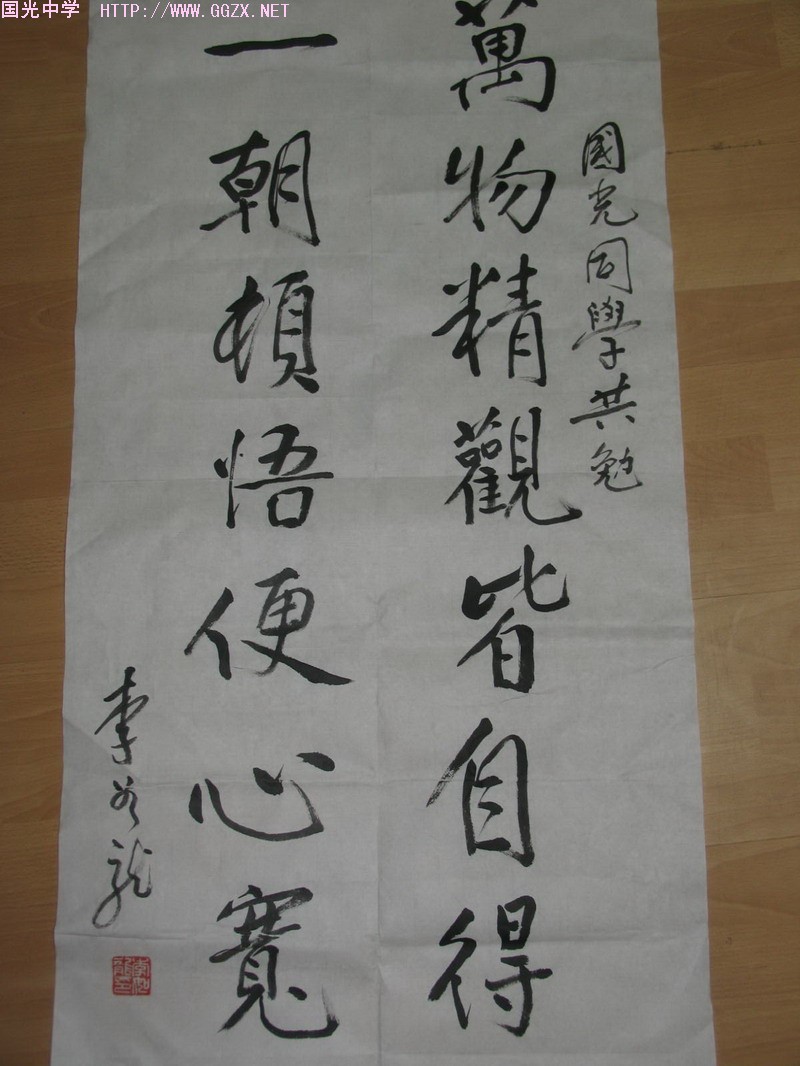 国光中学 HTTP://WWW.GGZX.NET
國光同學共勉
萬物精觀皆自得
一朝頓悟便心寬
李龍